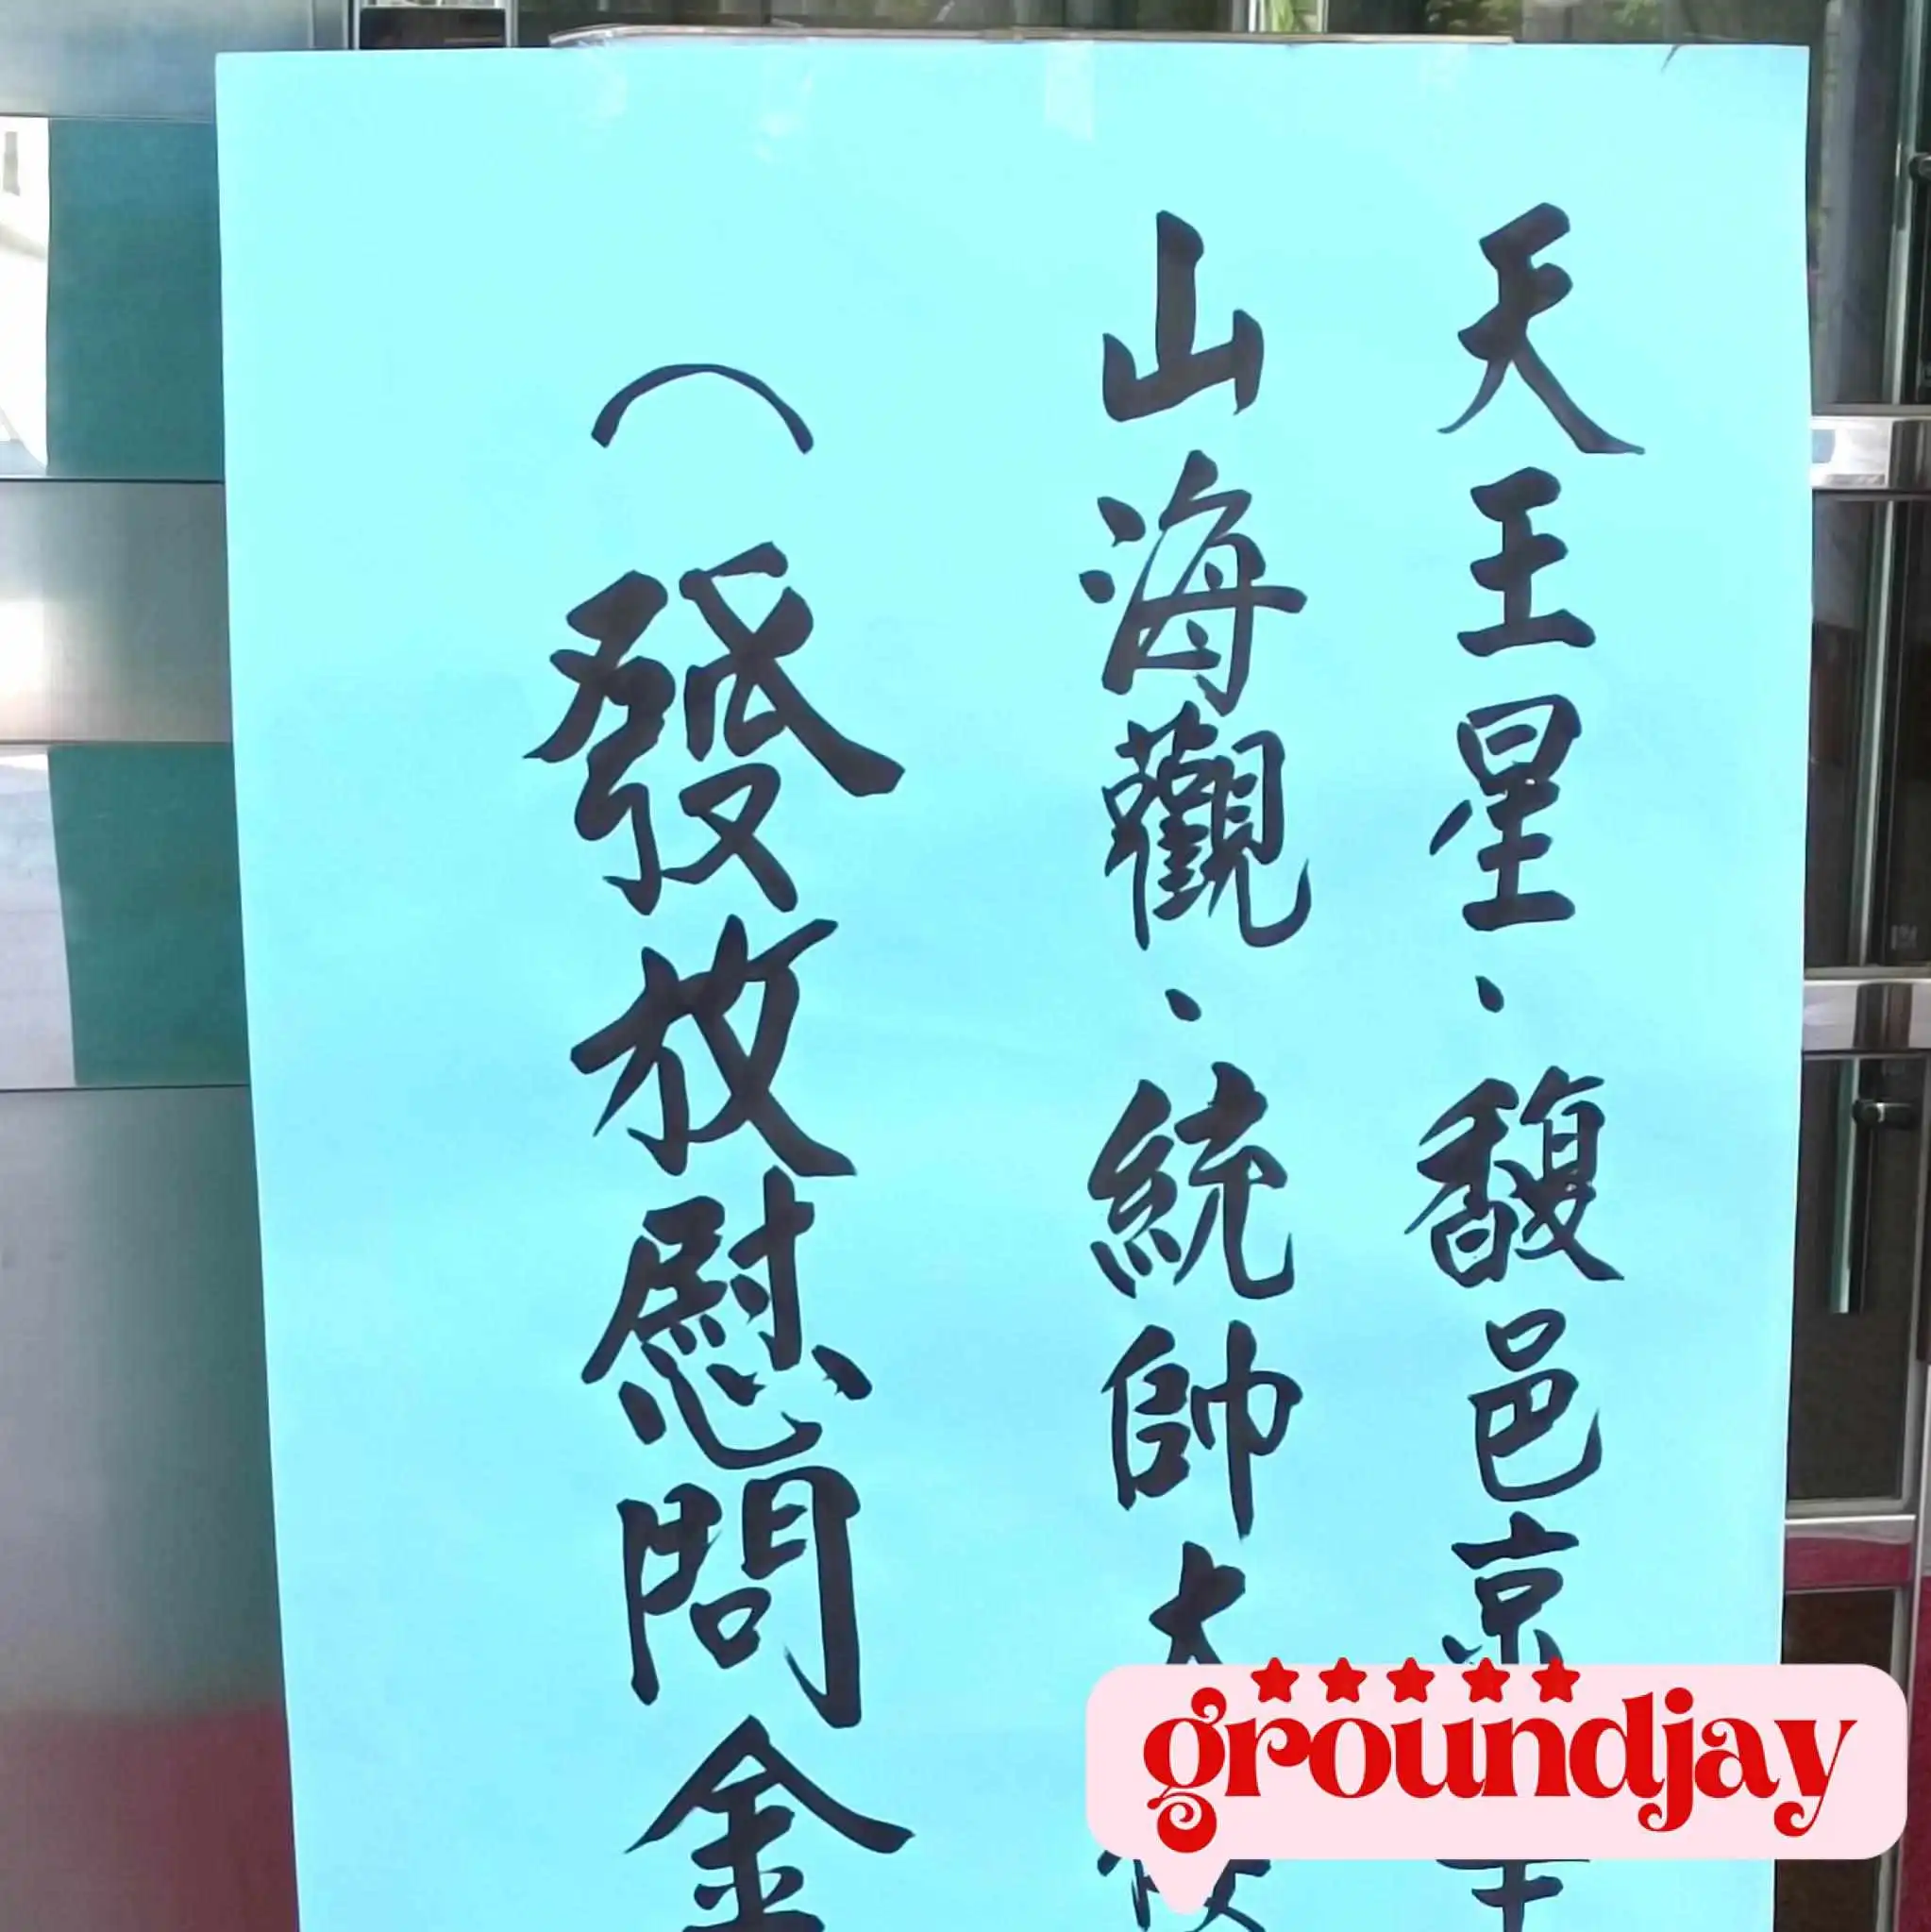 天王星、馥邑京
山海觀、統帥大
（發放慰問金
groundjay